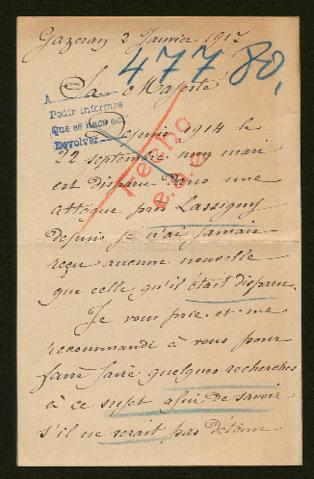 Gazeran 2 Janvier 1917
47780,
Sa Majesté
A
Pedir informes
Que se hace eco
Devolver
Depuis 1914 le
22 septembre mon mari
est disparu dans une
attaque près Lassigny
depuis je n'ai jamais
reçu aucune nouvelle
que celle qu'il était disparu.
Je vous prie et me
recommande à vous pour
faire faire quelques recherches
à ce sujet afin de savoir
s'il ne serait pas détenu